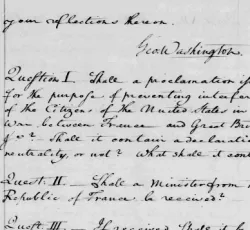 your reflections thereon.
Geo. Washington.
Question I. Shall a proclamation is
for the purpose of preventing interfer
of the Citizens of the United States in
War between France and Great Bri
&c? Shall it contain a declarati
neutrality, or not? what shall it cont
Quest. II — Shall a Minister from
Republic of France be received?
Quest. III — If received, shall it b